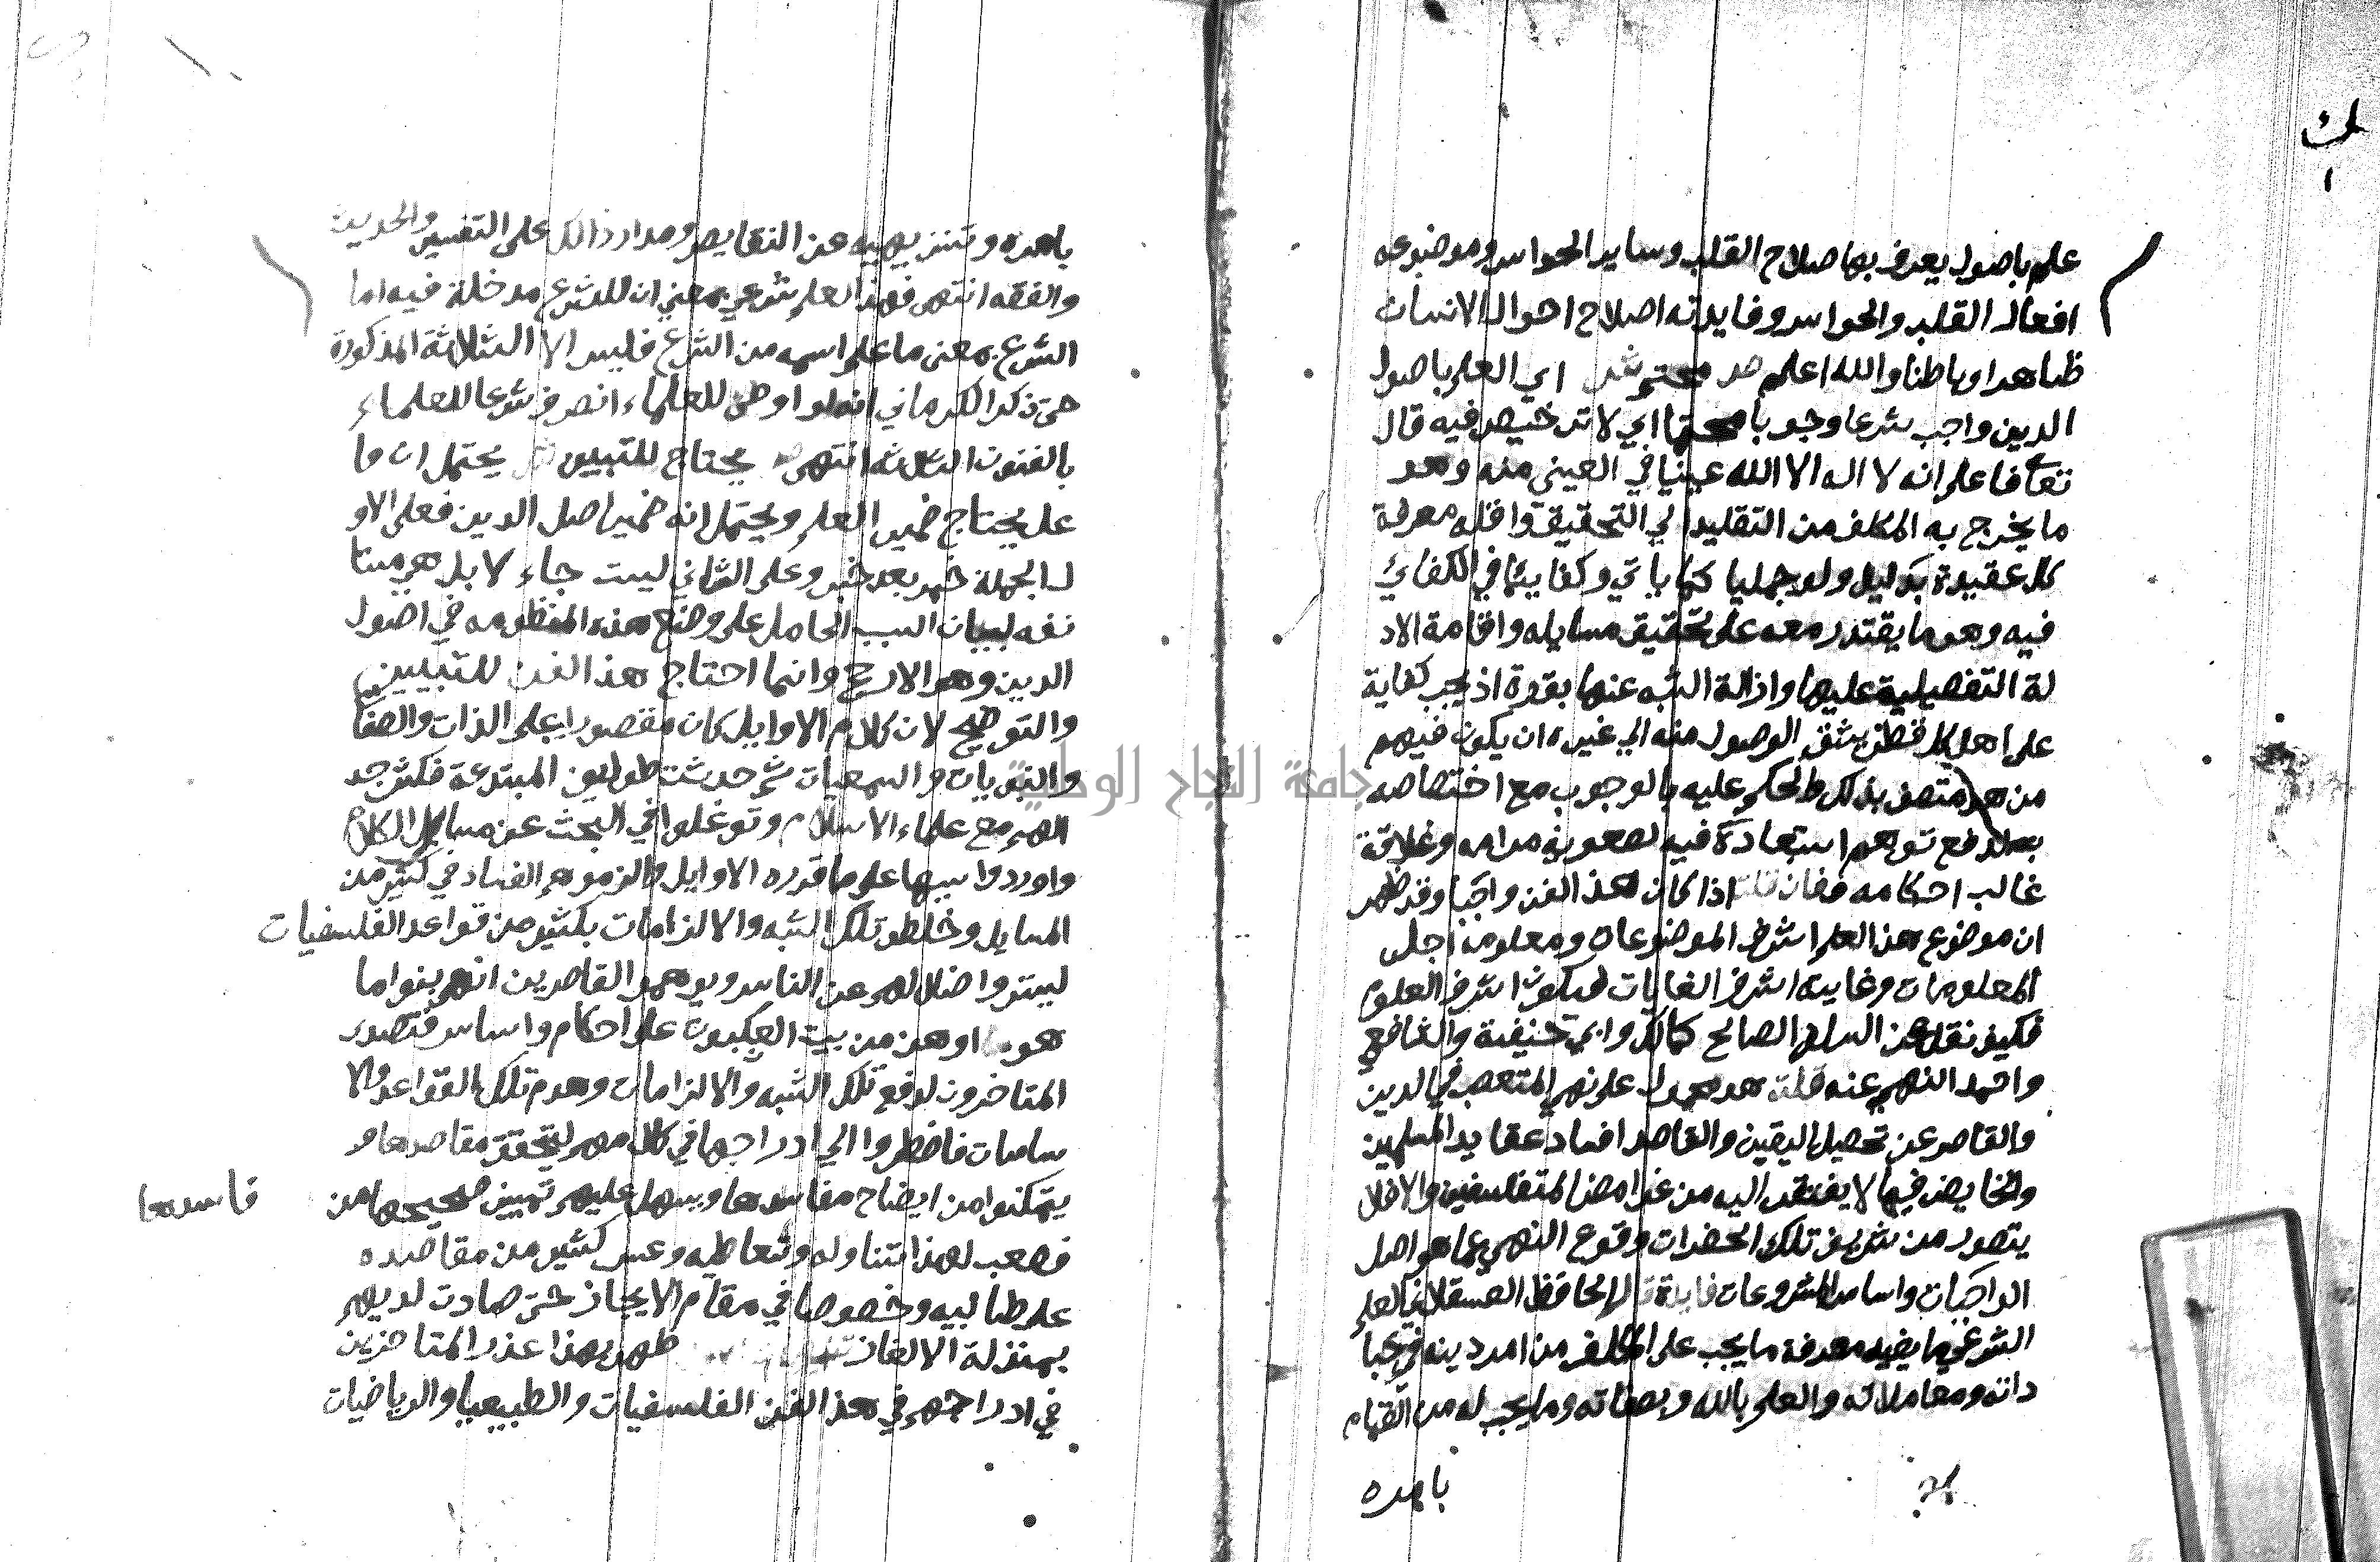 علم باصول يعرف بها صلاح القلب وساير الحواس وموضوعه
افعال القلب والحواس وفايدته اصلاح احوال الانسان
ظاهرا وباطنا والله اعلم ص محتم ش اي العلم باصول
الدين واجب شرعا وجوبا محتما اي لا ترخيص فيه قال
تعا فاعلم انه لا اله الا الله عينيا في العيني منه وهو
ما يخرج به المكلف من التقليد الي التحقيق واقله معرفة
كل عقيدة بدليل ولو جمليا كما ياتي وكفايئا في الكفائي
فيه وهو ما يقتدر معه على تحقيق مسايله واقامة الاد
لة التفصيلية عليها وازالة الشبه عنها بقوة اذ يجب كفاية
على اهل كل قطر يشق الوصول منه الي غيره ان يكون فيهم
من هو متصف بذلك والحكم عليه بالوجوب مع اختصاصه
به لدفع توهم استبعاده فيه لصعوبة مرامه وغلاقة
غالب احكامه فان قلت اذا كان هذا الفن واجبا وقد ظهر
ان موضوع هذا العلم اشرف الموضوعات ومعلومه اجل
المعلومات وغايته اشرف الغايات فيكون اشرف العلوم
فكيف نقل عن السلف الصالح كمالك وابي حنيفة والشافعي
واحمد النهي عنه قلت هو محمول على نهي المتعصب في الدين
والقاصر عن تحصيل اليقين والقاصد افساد عقايد المسلمين
والخايض فيما لا يفتقر اليه من غوامض المتفلسفين والا فلا
يتصور من شريف تلك الحضرات وقوع النهي عما هو اصل
الواجبات واساس المشروعات فايدة قال الحافظ العسقلاني العلم
الشرعي ما يفيد معرفة ما يجب على المكلف من امر دينه في عبا
داته ومعاملاته والعلم بالله وبصفاته وما يجب له من القيام
بامره
بامره وتنزيهيه عن النقايص ومدار ذالك على التفسير والحديث
والفقه انتهى فهذا العلم شرعي بمعني ان للشرع مدخلة فيه اما
الشرع بمعنى ما علم اسمه من الشرع فليس الا الثلاثة المذكورة
حتى ذكر الكرماني انه لو اوصى للعلماء انصرف شرعا للعلماء
بالفنون الثلاثة انتهى ص يحتاج للتبيين ش يحتمل ان فا
عل يحتاج ضمير العلم ويحتمل انه ضمير اصل الدين فعلى الاو
ل الجملة خبر بعد خبر وعلى الثاني ليست جاء لا بل هي مستا
نفه لبيان السبب الحامل على وضع هذه المنظومه في اصول
الدين وهو الارجح وانما احتاج هذا الفن للتبيين
والتوضيح لان كلام الاوايل كان مقصورا على الذات والصفا
والنبويات والسمعيات ثم حدثت طوايف المبتدعة فكثر جد
الهم مع علماء الاسلام وتوغلوا في البحث عن مسايل الكلام
واوردوا شبها على ما قرره الاوايل والزموهم الفساد في كثير من
المسايل وخلطو تلك الشبه والالزامات بكثير من قواعد الفلسفيات
ليستروا ضلالهم عن الناس ويوهموا القاصرين انهم بنوا ما
هو اوهن من بيت العنكبوت على احكام واساس فتصدر
المتاخرون لدفع تلك الشبه والالزامات وهدم تلك القواعد والا
ساسات فاضطروا الي ادراجها في كلامهم ليتحقق مقاصدها و
يتمكنوا من ايضاح مفاسدها ويسهل عليهم تمييز صحيحها من
فاسدها
فصعب لهذا تناوله وتعاطيه وعسر كثير من مقاصده
على طالبيه وخصوصا في مقام الايجاز حتى صارت لديهم
بمنزلة الالغاز ظهر بهذا عذر المتاخرين
في ادراجهم في هذا الفن الفلسفيات والطبيعيا والرياضيات
جامعة النجاح الوطنية